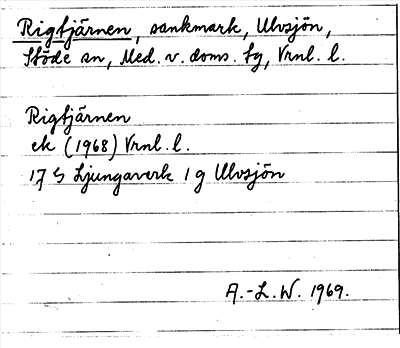 Rigtjärnen, sankmark, Ulvsjön,
Stöde sn, Med. v. doms. tg, Vrnl. l.
Rigtjärnen
ek (1968) Vrnl. l.
17 G Ljungaverk 1 g Ulvsjön
A.-L.W. 1969.